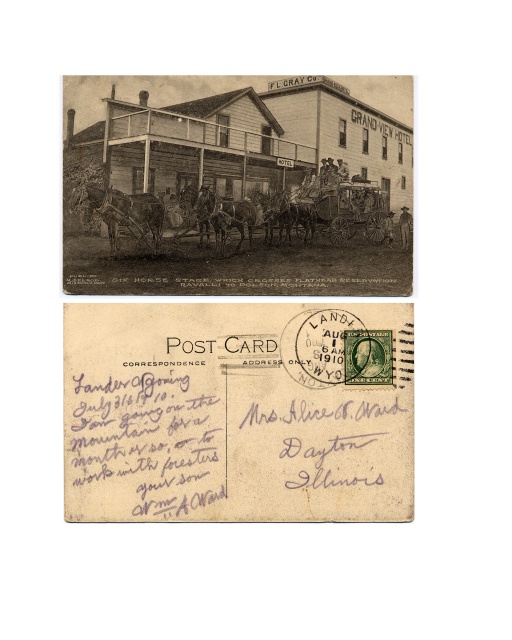 F L GRAY CO.
GRAND VIEW HOTEL
HOTEL
SIX HORSE STAGE, WHICH CROSSES FLATHEAD RESERVATION
RAVALLI TO POLSON, MONTANA.
POST CARD
CORRESPONDENCE
ADDRESS ONLY
LANDER
AUG
1
6 AM
1910
WYO
U.S. POSTAGE
ONE CENT
Lander Wyoming
July 31st 1910.
I am going on the
mountain for a
month or so, or to
work with foresters
your son
Wm A Ward
Mrs. Alice W. Ward
Dayton
Illinois